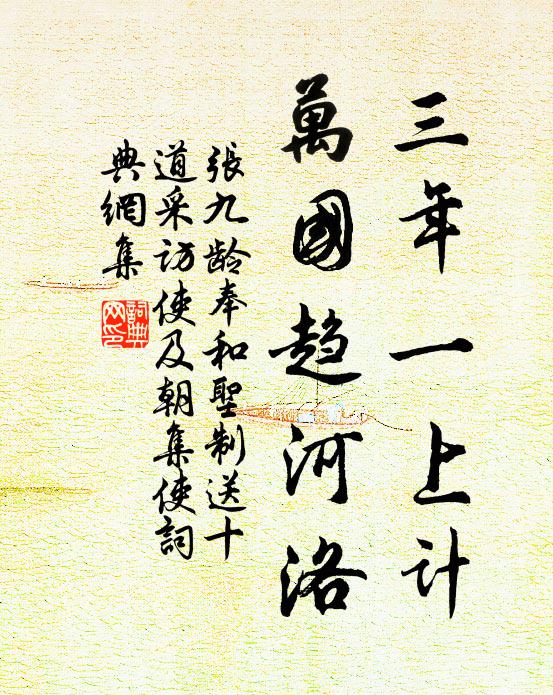 三年一上计
萬國趋河洛
張九龄奉和聖制送十
道采访使及朝集使詞
典網集
詞典
网印